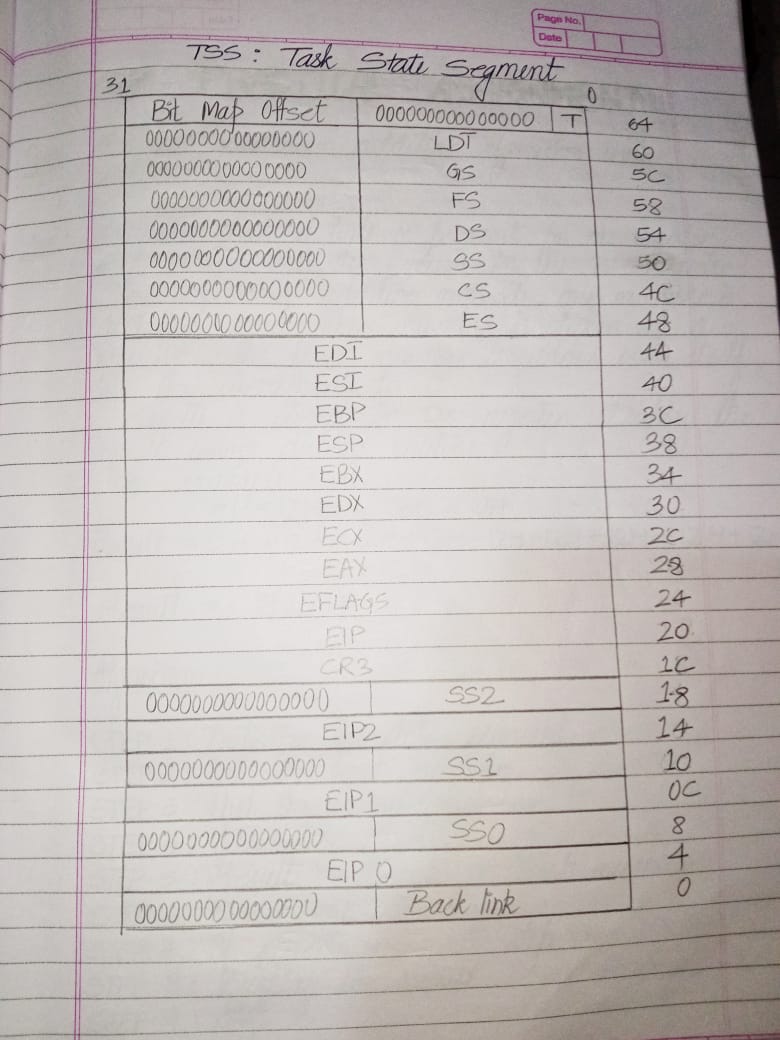 Page No.
Date
TSS : Task State Segment
31 0
Bit Map Offset 000000000000000 T 64
0000000000000000 LDT 60
000000000000000 GS 5C
0000000000000000 FS 58
0000000000000000 DS 54
0000000000000000 SS 50
0000000000000000 CS 4C
0000000000000000 ES 48
EDI 44
ESI 40
EBP 3C
ESP 38
EBX 34
EDX 30
ECX 2C
EAX 28
EFLAGS 24
EIP 20
CR3 1C
0000000000000000 SS2 18
EIP2 14
0000000000000000 SS1 10
EIP1 0C
0000000000000000 SS0 8
EIP 0 4
0000000000000000 Back link 0